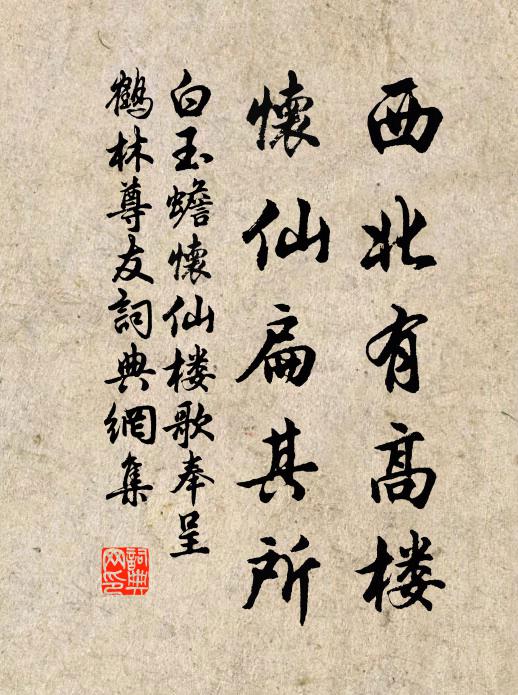 西北有高楼
懷仙扁其所
白玉蟾懷仙楼歌奉呈
鶴林尊友詞典網集
詞典网印